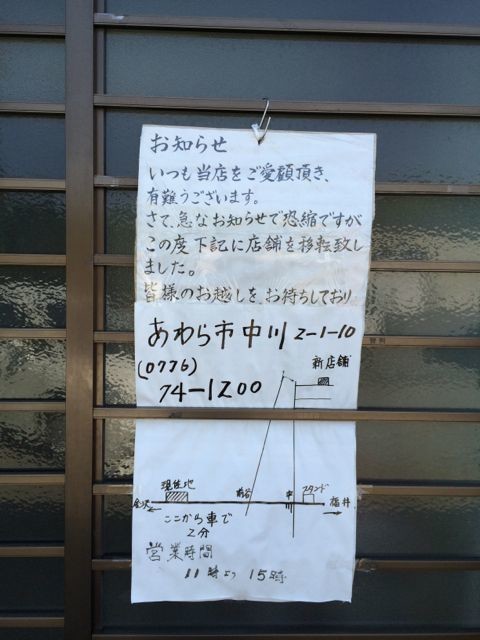 お知らせ
いつも当店をご愛顧頂き、
有難うございます。
さて、急なお知らせで恐縮ですが
この度下記に店舗を移転致し
ました。
皆様のお越しを、お待ちしており
あわら市中川2-1-10
(0776)
74-1200
新店舗
現在地
スタンド
金沢
福井
ここから車で
2分
営業時間
11時より15時